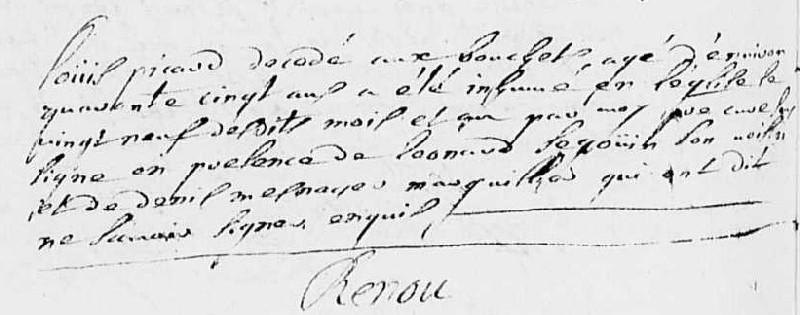 loüis picard decedé aux bouchets, agé d'environ
quarante cinqt ans a été inhumé en l'églize le
vingt neuf desdits mois et an par moy curé sous
signé en presence de leonard segoüin son voisin
et de denis mesnager marguillier qui ont dit
ne scavoir signer enquis
Renou